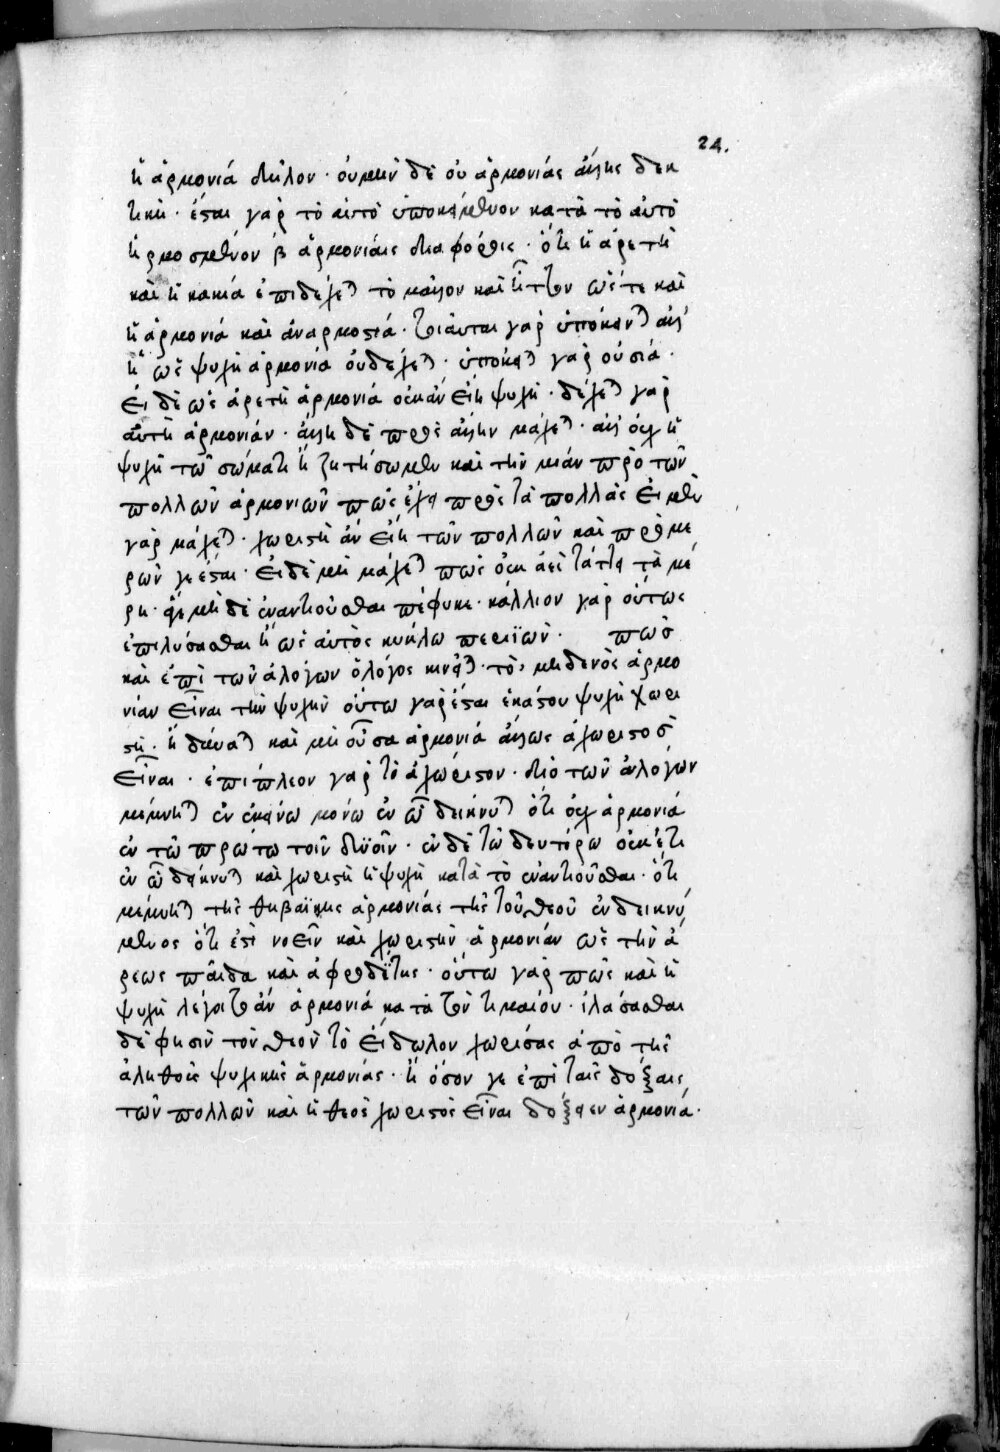 24.
ἡ ἁρμονία δῆλον · οὐ μὴν δὲ οὐ ἁρμονίας ἄλλης δεκ
τική · ἔσται γὰρ τὸ αὐτὸ ὑποκείμενον κατὰ τὸ αὐτὸ
ἡρμοσμένον β ἁρμονίαις διαφόροις · ὅτι ἡ ἀρετὴ
καὶ ἡ κακία ἐπιδέχεται τὸ μᾶλλον καὶ ἧττον ὥστε καὶ
ἡ ἁρμονία καὶ ἀναρμοστία · τοιαῦται γὰρ ὑπόκεινται ἀλλ'
ἡ ὡς ψυχὴ ἁρμονία οὐ δέχεται · ὑπόκειται γὰρ οὐσία ·
εἰ δὲ ὡς ἀρετὴ ἁρμονία οὐκ ἂν εἴη ψυχή · δέχεται γὰρ
αὐτὴ ἁρμονίαν · ἄλλη δὲ πρὸς ἄλλην μάχεται · ἀλλ' οὐχ ἡ
ψυχὴ τῶ σώματι ἢ ζητήσωμεν καὶ τὴν μίαν πρὸ τῶν
πολλῶν ἁρμονιῶν πῶς ἔχει πρὸς τὰ πολλὰς εἰ μὲν
γὰρ μάχεται · χωριστὴ ἂν εἴη τῶν πολλῶν καὶ πρὸ με
ρῶν γε ἔσται · εἰ δὲ μὴ μάχεται πῶς οὐκ ἀεὶ τάττει τὰ μέ
ρη · εἰ μὴ δὲ ἐναντιοῦσθαι πέφυκε · κάλλιον γὰρ οὕτως
ἐπιλύσασθαι ἢ ὡς αὐτὸς κύκλω περιϊών · πῶς
καὶ ἐπὶ τῶν ἀλόγων ὁ λόγος κινεῖται · τὸ, μηδενὸς ἁρμο
νίαν εἶναι τὴν ψυχὴν οὕτω γὰρ ἔσται ἑκάστου ψυχὴ χωρι
στή · ἢ δύναται καὶ μὴ οὖσα ἁρμονία ἄλλως ἀχώριστος
εἶναι · ἐπιπλέον γὰρ τὸ ἀχώριστον · διὸ τῶν ἀλόγων
μέμνηται ἐν ἐκείνω μόνω ἐν ὧ δείκνυται ὅτι οὐχ ἁρμονία
ἐν τῶ πρώτω τοῖν δυοῖν · ἐν δὲ τῶ δευτέρω οὐκέτι
ἐν ὧ δείκνυται καὶ χωριστὴ ἡ ψυχὴ κατὰ τὸ ἐναντιοῦσθαι · ὅτι
μέμνηται τῆς θηβαϊκῆς ἁρμονίας τῆς τοῦ θεοῦ ἐνδεικνύ
μενος ὅτι ἐστὶ νοεῖν καὶ χωριστὴν ἁρμονίαν ὡς τὴν ἄ
ρεως παῖδα καὶ ἀφροδίτης · οὕτω γὰρ πῶς καὶ ἡ
ψυχὴ λέγοιτο ἂν ἁρμονία κατὰ τὸν τίμαιον · ἱλάσασθαι
δέ φησιν τὸν θεὸν τὸ εἴδωλον χωρίσας ἀπὸ τῆς
ἀληθοῦς ψυχικῆς ἁρμονίας · ἢ ὅσον γε ἐπὶ ταῖς δόξαις
τῶν πολλῶν καὶ ἡ θεὸς χωριστὸς εἶναι δόξειεν ἁρμονία ·